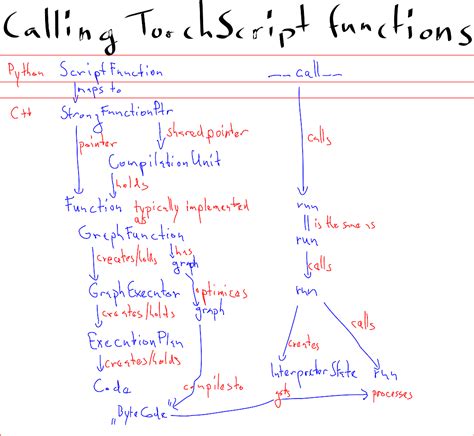 Calling TorchScript functions
Python ScriptFunction __call__
maps to
C++ StrongFunctionPtr
pointer shared pointer calls
CompilationUnit
holds
Function typically implemented as run
|| is the same as
GraphFunction run
creates/holds has calls
graph
GraphExecutor optimizes run
creates/holds graph
calls
ExecutionPlan creates
creates/holds InterpreterState run
Code compiles to gets processes
"ByteCode"